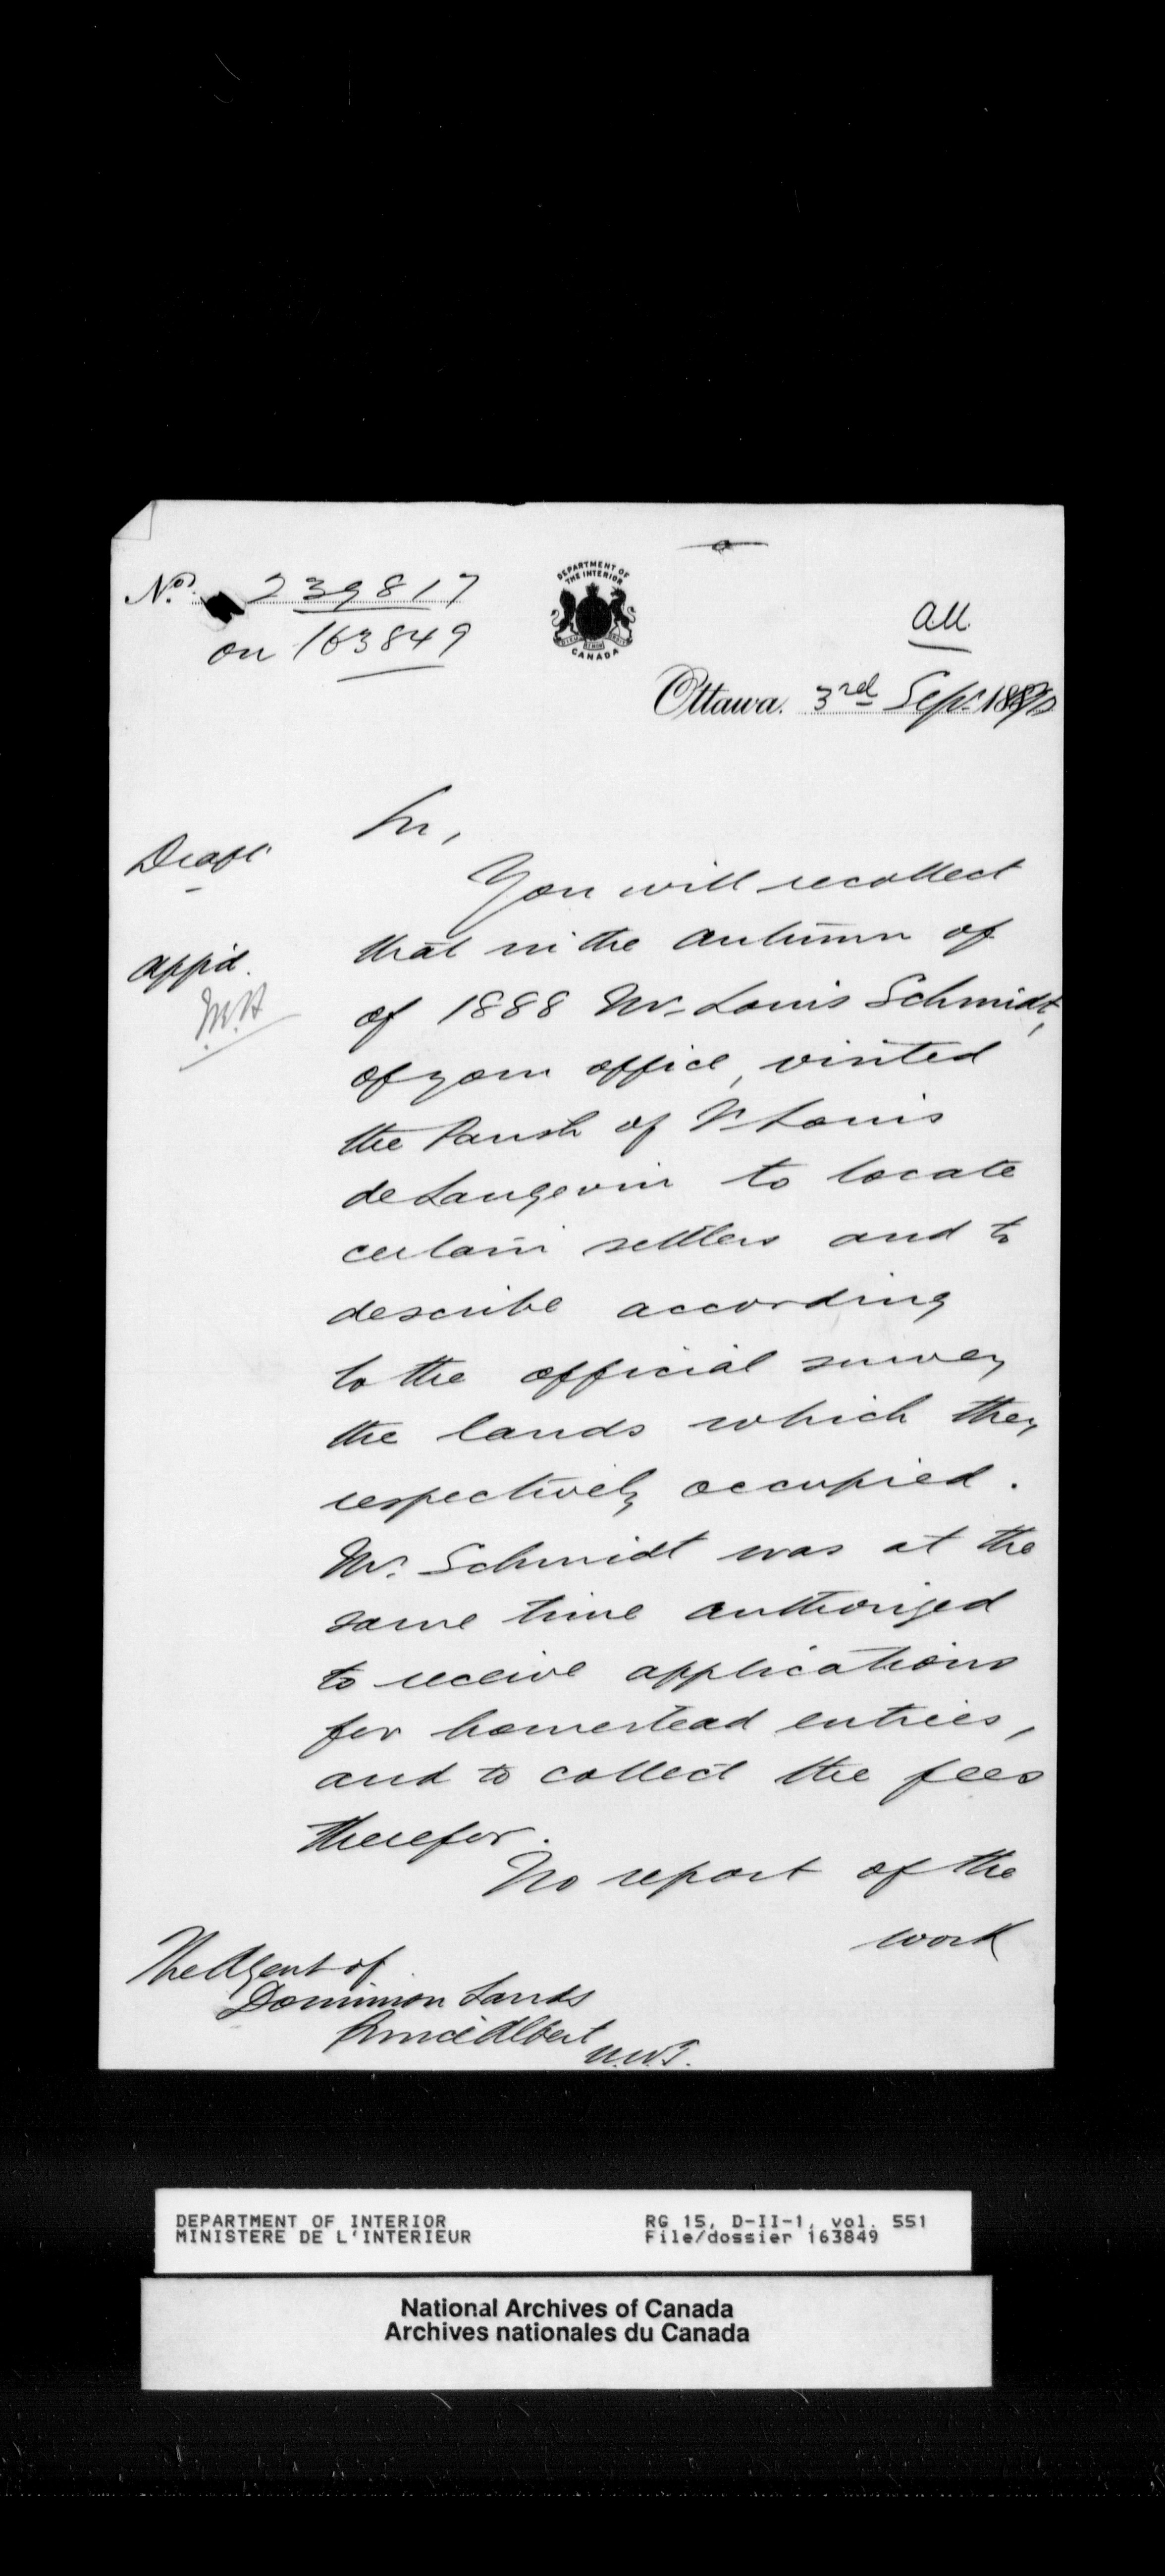 No. 239817
on 163849
DEPARTMENT OF
THE INTERIOR
CANADA
all
Ottawa. 3rd Sept. 1890
Draft
appd.
Sir,
You will recollect
that in the autumn of
of 1888 Mr. Louis Schmidt,
of your office, visited
the Parish of St. Louis
de Langevin to locate
certain settlers and to
describe according
to the official survey
the lands which they
respectively occupied.
Mr. Schmidt was at the
same time authorized
to receive applications
for homestead entries,
and to collect the fees
therefor.
No report of the
work
The Agent of
Dominion Lands
Prince Albert
N.W.T.
DEPARTMENT OF INTERIOR
MINISTERE DE L'INTERIEUR
RG 15, D-II-1, vol. 551
File/dossier 163849
National Archives of Canada
Archives nationales du Canada